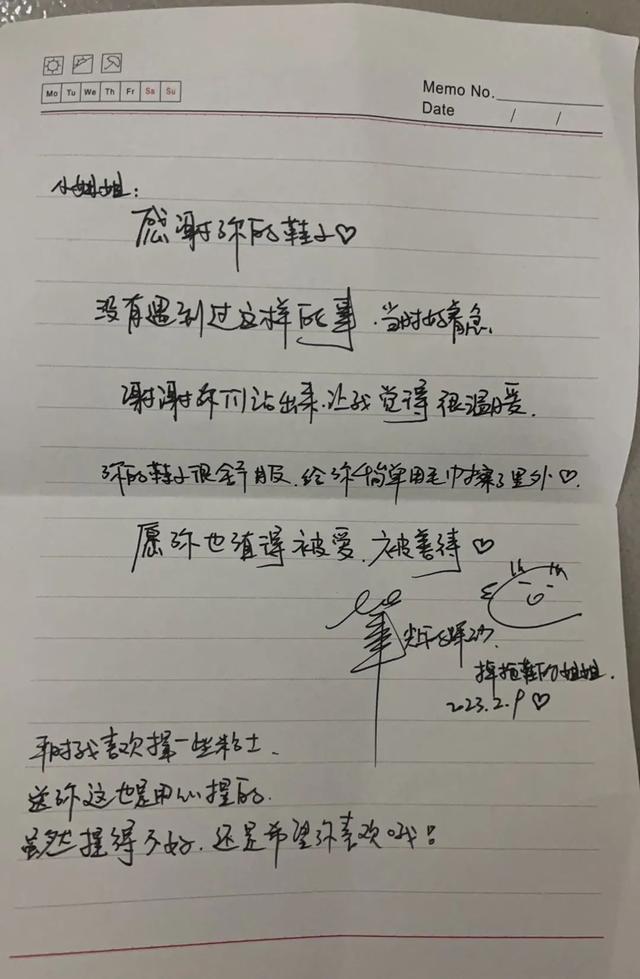 Mo Tu We Th Fr Sa Su
Memo No.
Date / /
小姐姐：
感谢你的鞋子♡
没有遇到过这样的事，当时好着急，
谢谢你们站出来，让我觉得很温暖，
你的鞋子很舒服，给你简单用毛巾擦了里外♡，
愿你也值得被爱，被善待♡
掉拖鞋的姐姐，
2023.2.9♡
平时我喜欢捏一些粘土，
送你这也是用心捏的，
虽然捏得不好，还是希望你喜欢哦！